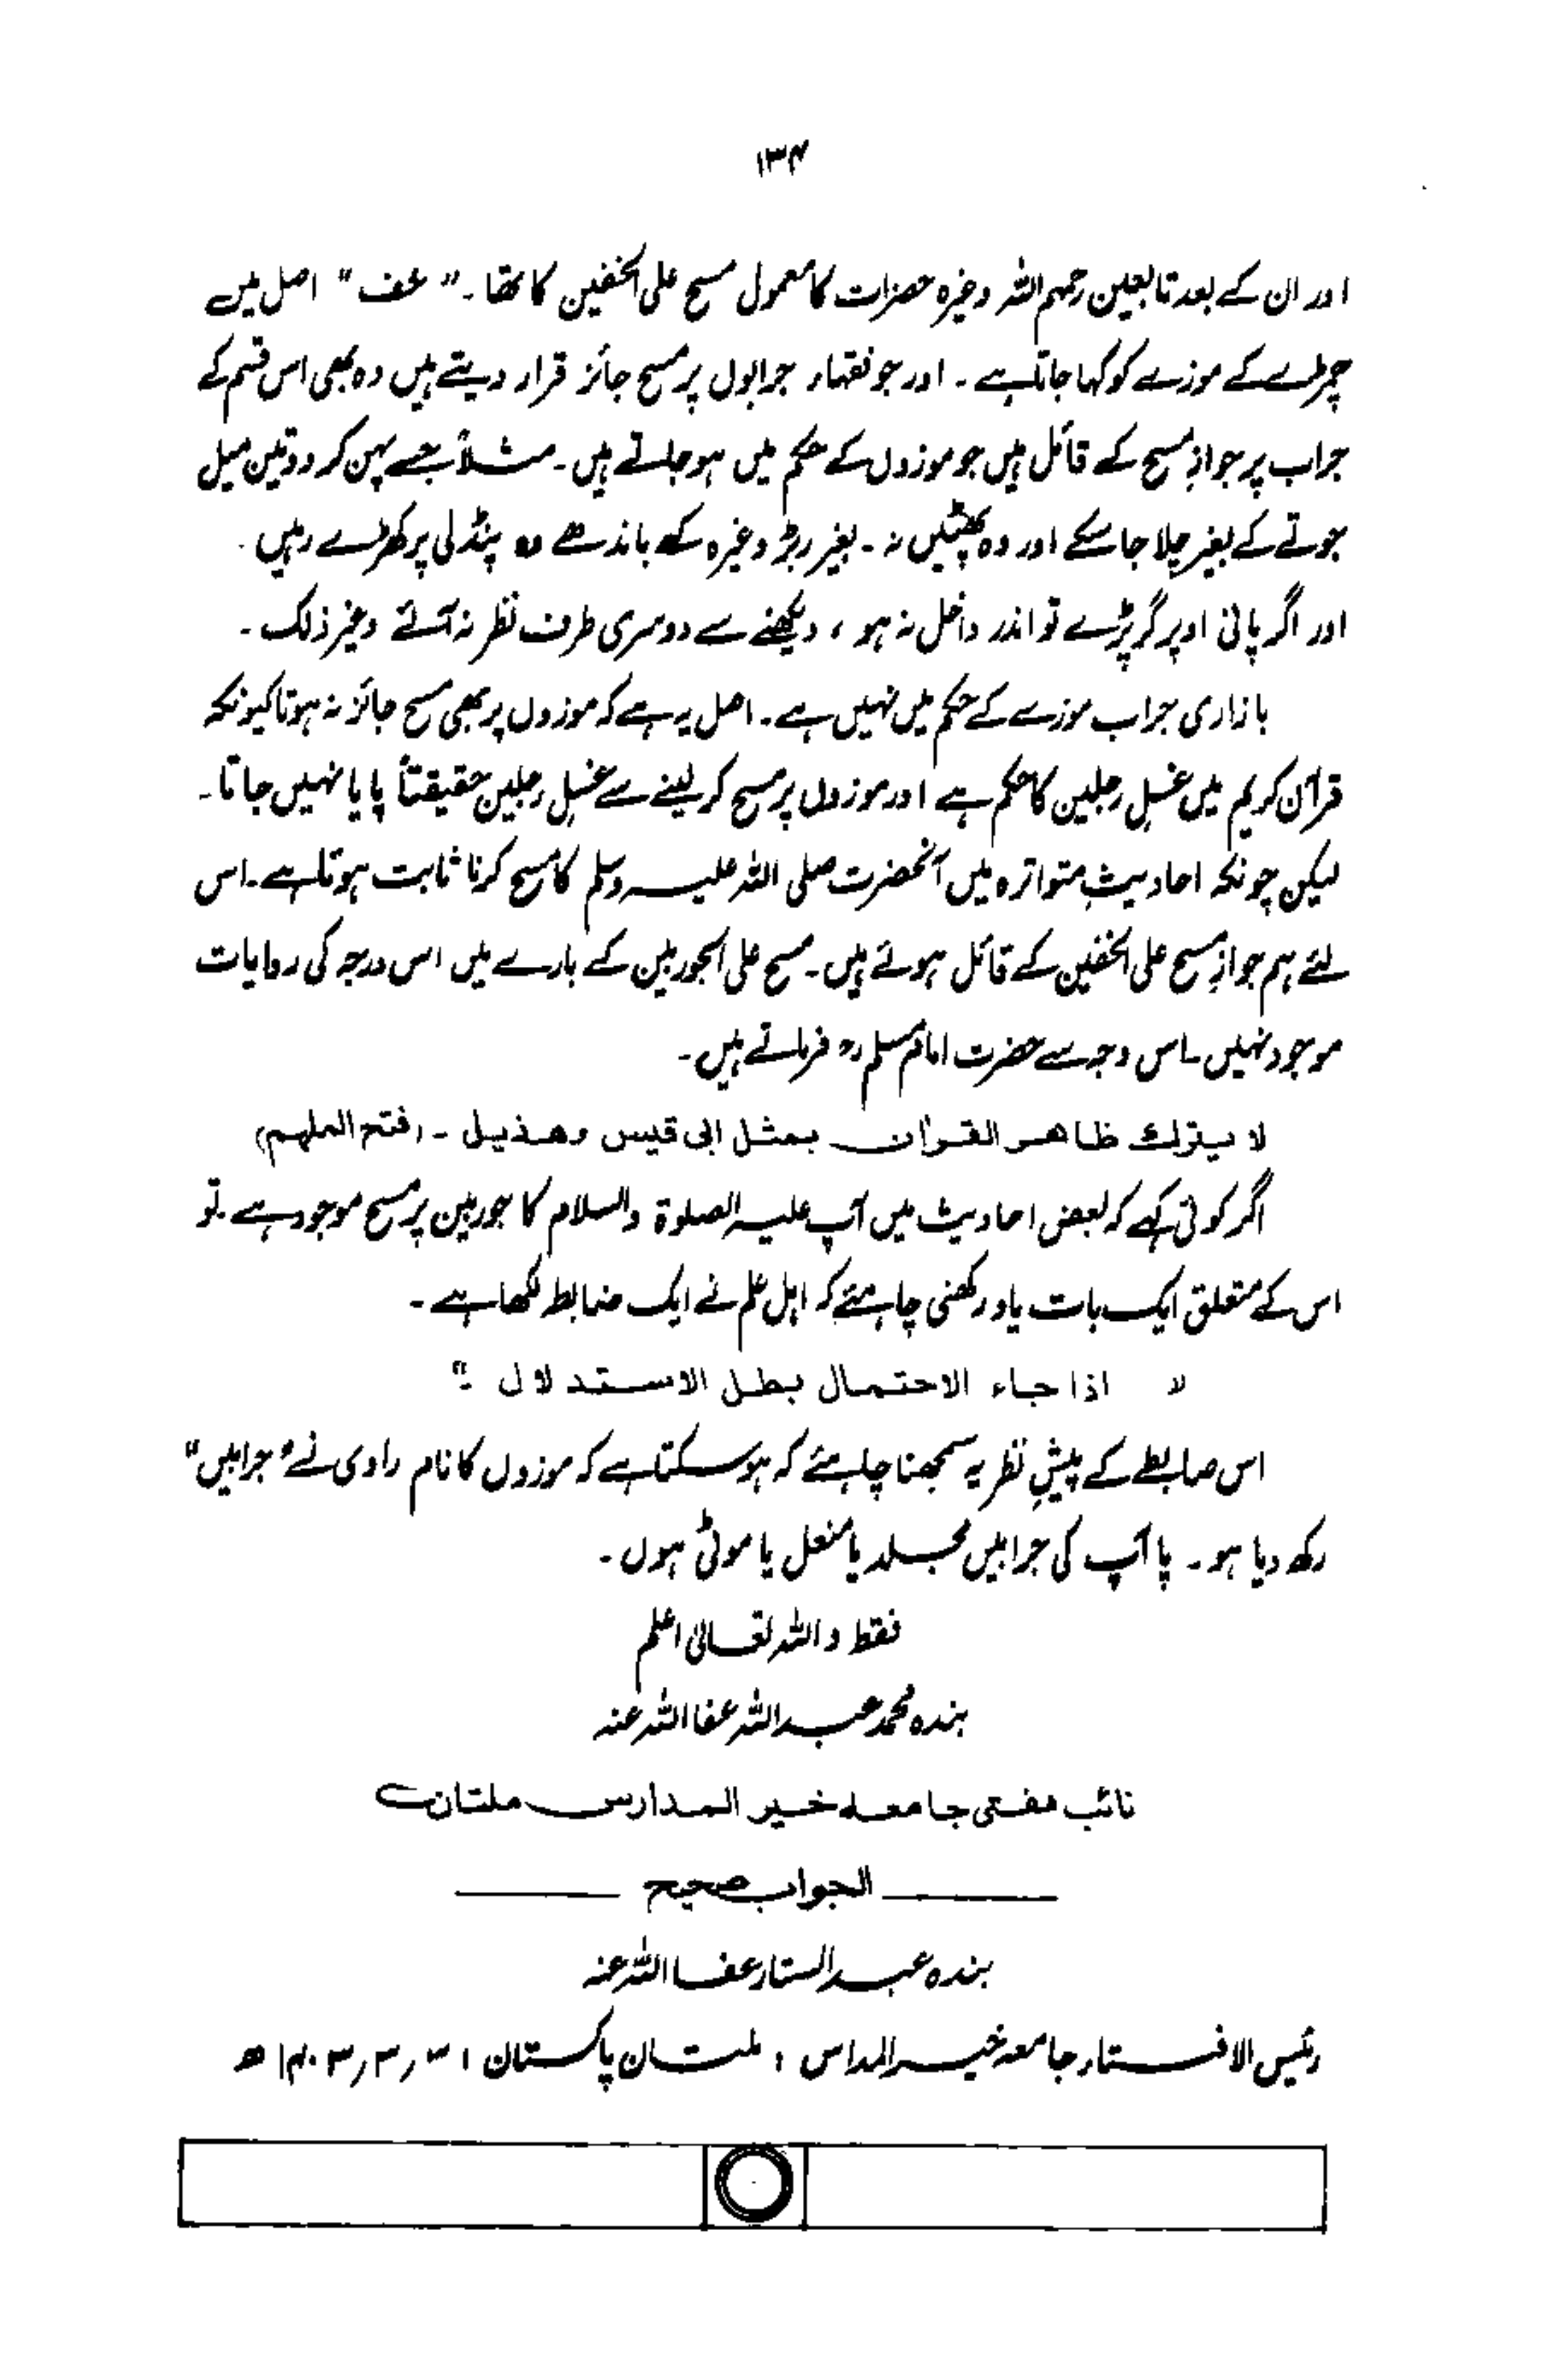 ۱۳۴
اور ان کے بعد تابعین رحمہم اللہ وغیرہ حضرات کا معمول مسح علی الخفین کا تھا۔ "خف" اصل میں
چمڑے کے موزے کو کہا جاتا ہے۔ اور جو فقہاء جرابوں پر مسح جائز قرار دیتے ہیں وہ بھی اس قسم کے
جراب پر جوازِ مسح کے قائل ہیں جو موزوں کے حکم میں ہو جاتے ہیں۔ مثلاً جسے پہن کر دو تین میل
جوتے کے بغیر چلا جا سکے اور وہ پھٹیں نہ۔ بغیر ربڑ وغیرہ کے باندھے وہ پنڈلی پر کھڑے رہیں۔
اور اگر پانی اوپر گر پڑے تو اندر داخل نہ ہو، دیکھنے سے دوسری طرف نظر نہ آئے وغیر ذلک۔
بازاری جراب موزے کے حکم میں نہیں ہے۔ اصل یہ ہے کہ موزوں پر بھی مسح جائز نہ ہوتا کیونکہ
قرآن کریم میں غسلِ رجلین کا حکم ہے اور موزوں پر مسح کر لینے سے غسلِ رجلین حقیقتاً پایا نہیں جاتا۔
لیکن چونکہ احادیثِ متواترہ میں آنحضرت صلی اللہ علیہ وسلم کا مسح کرنا ثابت ہوتا ہے۔ اس
لئے ہم جوازِ مسح علی الخفین کے قائل ہوئے ہیں۔ مسح علی الجوربین کے بارے میں اس درجہ کی روایات
موجود نہیں۔ اس وجہ سے حضرت امام مسلم رح فرماتے ہیں۔
لا یترك ظاهر القرآن بمثل ابی قیس وهذیل۔ (فتح الملهم)
اگر کوئی کہے کہ بعض احادیث میں آپ علیہ الصلوة والسلام کا جوربین پر مسح موجود ہے۔ تو
اس کے متعلق ایک بات یاد رکھنی چاہیئے کہ اہل علم نے ایک ضابطہ لکھا ہے۔
" اذا جاء الاحتمال بطل الاستدلال "۔
اس ضابطے کے پیشِ نظر یہ سمجھنا چاہیئے کہ ہو سکتا ہے کہ موزوں کا نام راوی نے "جرابیں"
رکھ دیا ہو۔ یا آپ کی جرابیں مجلد یا منعل یا موٹی ہوں۔
فقط واللہ تعالیٰ اعلم
بندہ محمد عبداللہ عفا اللہ عنہ
نائب مفتی جامعہ خیر المدارس ملتان
الجواب صحیح
بندہ عبدالستار عفا اللہ عنہ
رئیس الافتاء جامعہ خیر المداس، ملتان پاکستان، ۳؍۳؍۱۴۰۳ھ